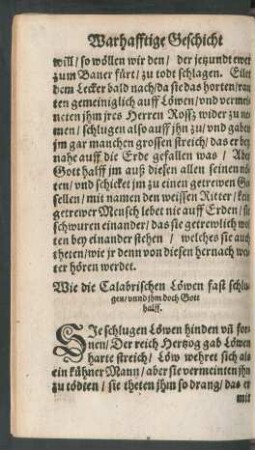 Warhafftige Geschicht
will / so wöllen wir den / der jetzundt ewer
zum Baner fürt / zu todt schlagen. Eilet
dem Lecker bald nach / da sie das horten / ran
ten gemeiniglich auff Löwen / vnd vermein
ncten jhm jres Herren Rossz wider zu ne
men / schlugen also auff jhn zu / vnd gaben
jm gar manchen grossen streich / das er bey
nahe auff die Erde gefallen was / Aber
Gott halff jm auß diesen allen seinen nö
ten / vnd schicket jm zu einen getrewen Ge
sellen / mit namen den weissen Ritter / kein
getrewer Mensch lebet nie auff Erden / sie
schwuren einander / das sie getrewlich wol
ten bey einander stehen / welches sie auch
theten / wie jr denn von diesen hernach wei
ter hören werdet.
Wie die Calabrischen Löwen fast schlu
gen / vnnd jhm doch Gott
halff.
SIe schlugen Löwen hinden vñ for
nen / Der reich Hertzog gab Löwen
harte streich / Löw wehret sich als
ein kühner Mann / aber sie vermeinten jhn
zu tödten / sie theten jhm so drang / das er
mit